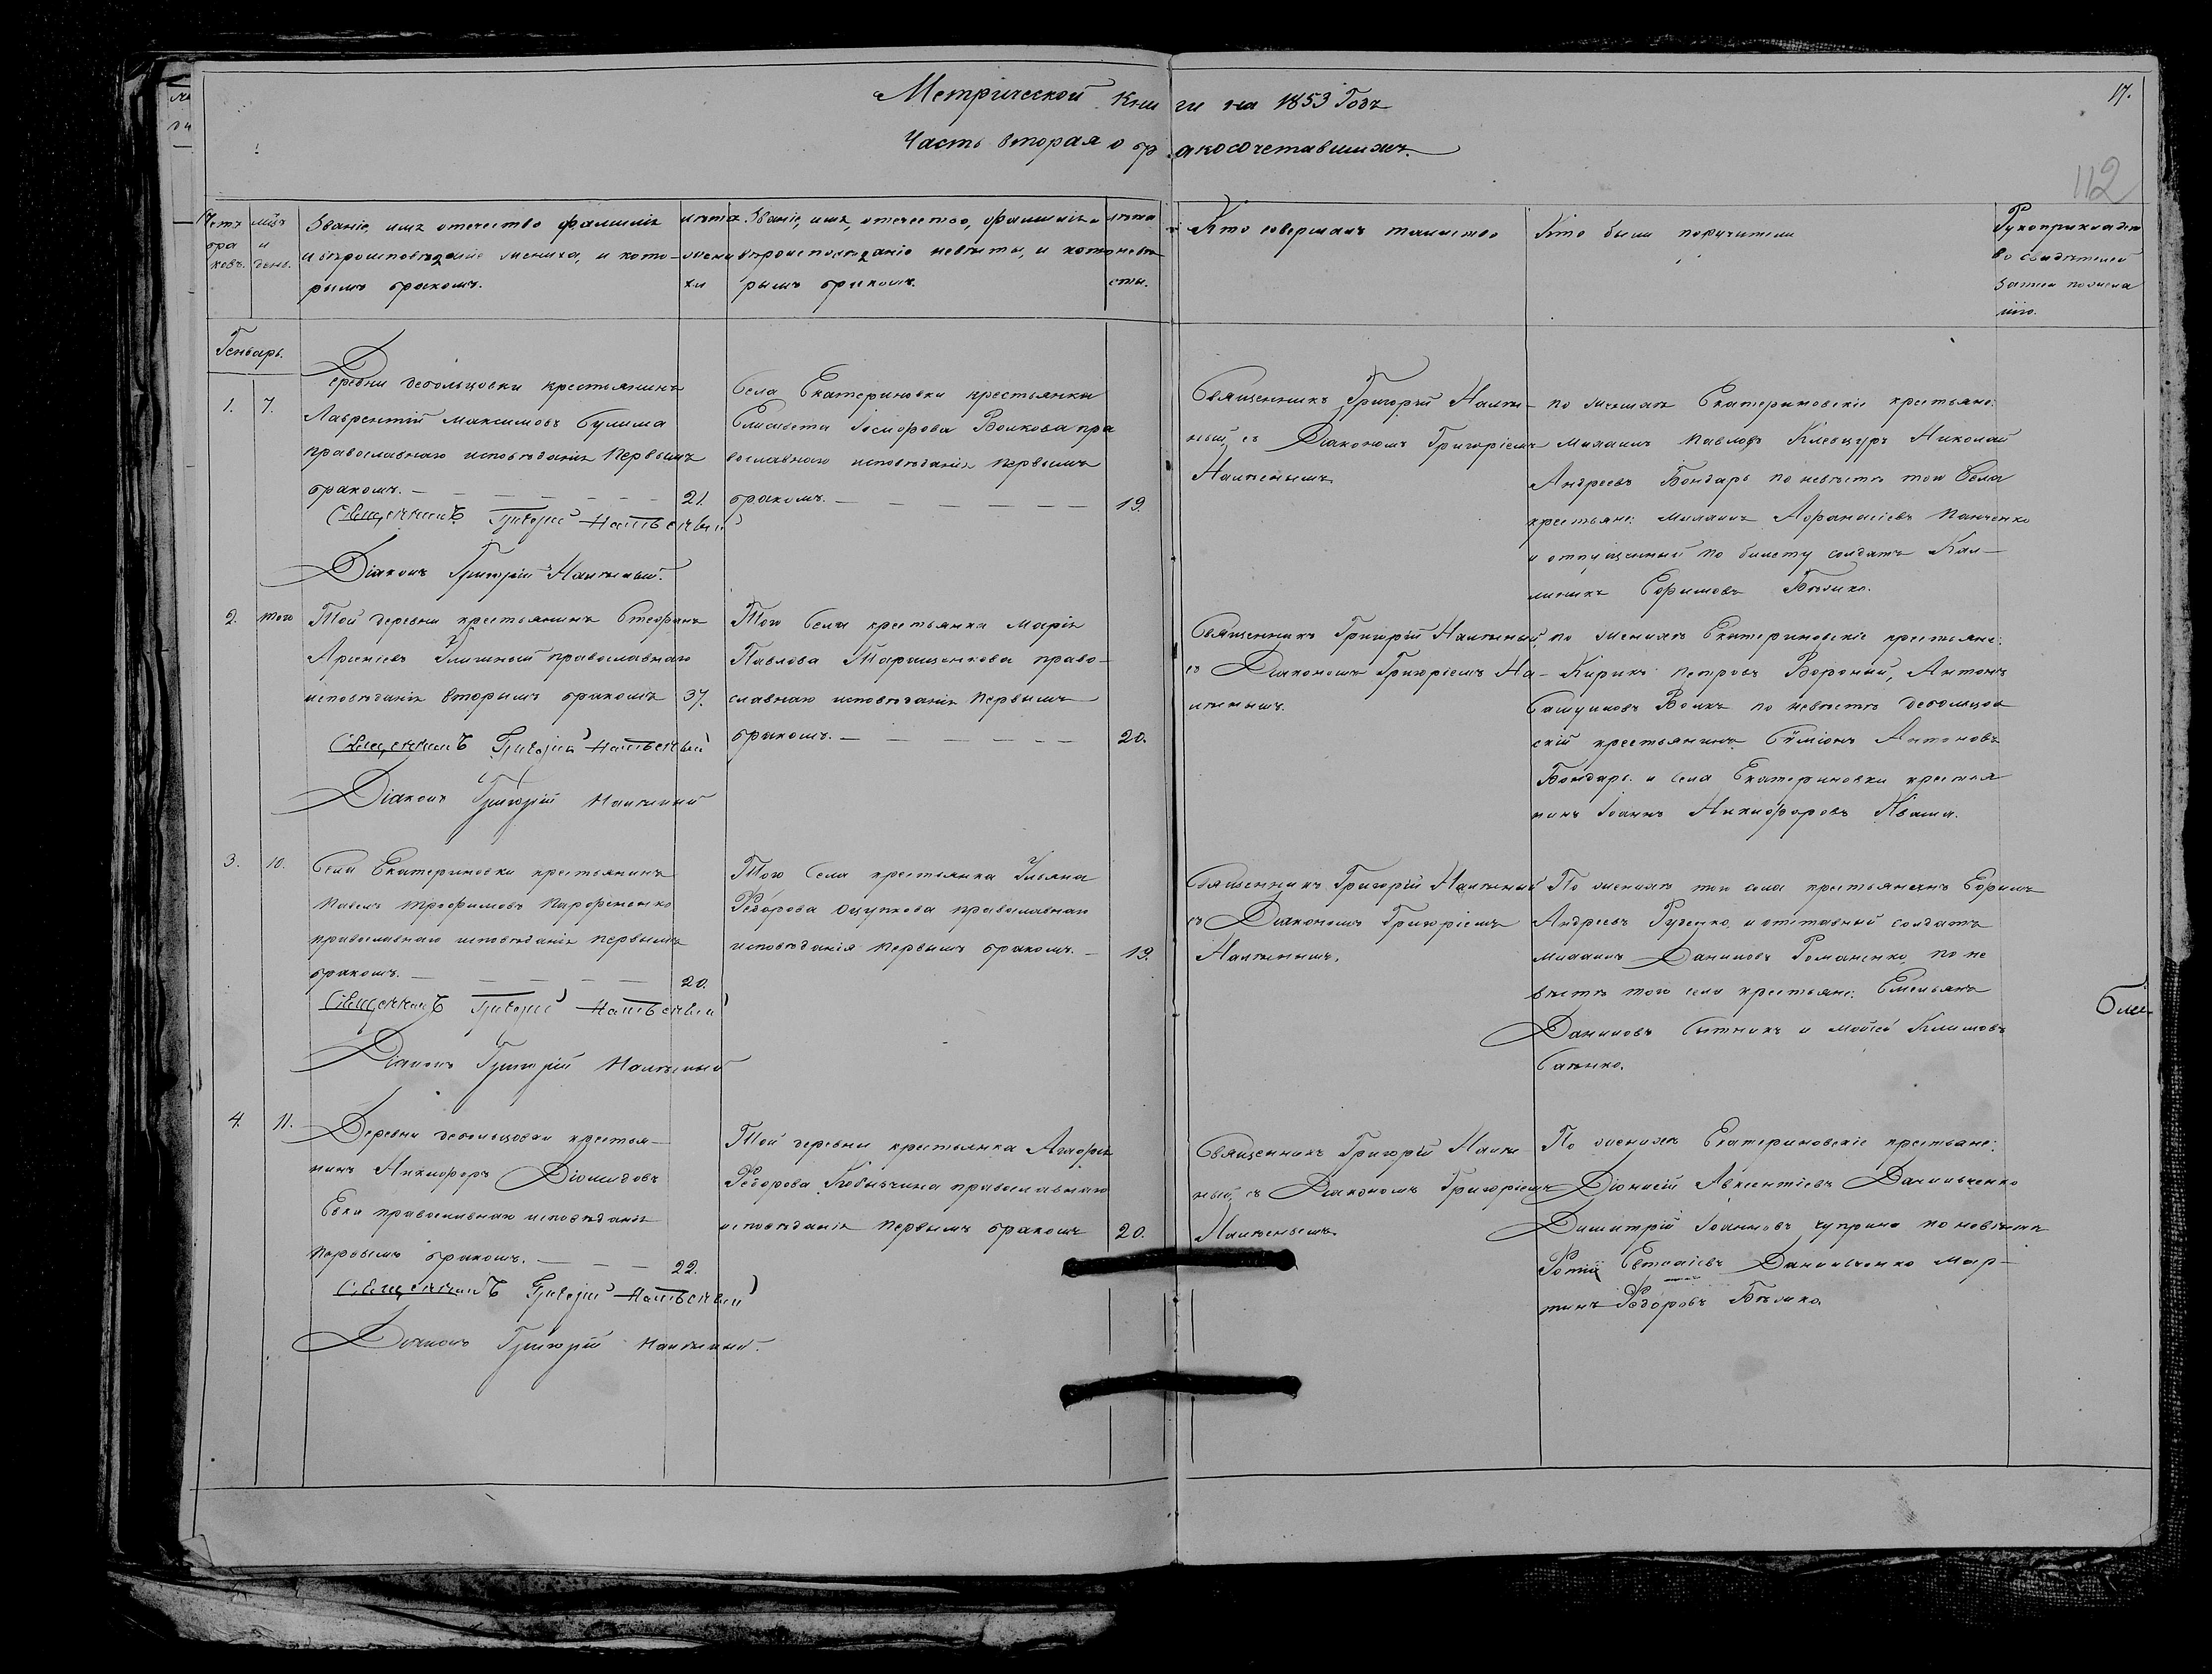 Метрической книги на 1853 Годъ
17.
Часть вторая о бракосочетавшихся
112
Счетъ браковъ.
мѣсяцъ и день.
Званіе, имя отечество фамилія
и вѣроисповѣданіе жениха, и кото-
рымъ бракомъ.
лѣта жениха
Званіе, имя, отечество, фамилія и
вѣроисповѣданіе невѣсты, и кото
рымъ бракомъ.
лѣта невѣсты.
Кто совершалъ таинство
Кто были поручители
Рукоприкладство
свидѣтелей
записи по желанію.
Генварь.
1. 7.
Деревни Дебольцовки крестьянинъ
Лаврентій Максимовъ Булима
православнаго исповѣданія первымъ
бракомъ. — 21.
Священникъ Григорій Налѣсный
Діаконъ Григорій Налѣсный.
Села Екатериновки крестьянка
Елисавета Волкова пра
вославнаго исповѣданія первымъ
бракомъ. — 19.
Священникъ Григорій Налѣс-
ный, съ Діакономъ Григоріемъ
Налѣснымъ
по женихѣ Екатериновскіе крестьяне:
Михаилъ Павловъ Николай
Андреевъ Бондарь по невѣстѣ того Села
крестьяне: Михаилъ Афанасіевъ Панченко
и отпущенный по билету солдатъ Кал-
линикъ Ефимовъ Бѣлико.
2. того
Той деревни крестьянинъ Стефанъ
Арсеніевъ православнаго
исповѣданія вторымъ бракомъ 37.
Священникъ Григорій Налѣсный
Діаконъ Григорій Налѣсный
Того Села крестьянка Марія
Павлова Таращенкова право-
славнаго исповѣданія первымъ
бракомъ. — 20.
Священникъ Григорій Налѣсный,
съ Діакономъ Григоріемъ На-
лѣснымъ.
по женихѣ Екатериновскіе крестьяне:
Кирикъ Петровъ Вороний, Антонъ
Самуиловъ Волкъ по невѣстѣ Дебольцов
скій крестьянинъ Симіонъ Антоновъ
Бондарь. и Села Екатериновки крестья
нинъ Іоаннъ Никифоровъ Кваша.
3. 10.
Села Екатериновки крестьянинъ
Павелъ Трофимовъ Парфененко
православнаго исповѣданія первымъ
бракомъ. — 20.
Священникъ Григорій Налѣсный
Діаконъ Григорій Налѣсный
Того Села крестьянка Ульяна
Федорова Оцупкова православнаго
исповѣданія первымъ бракомъ. — 19.
Священникъ Григорій Налѣсный
съ Діакономъ Григоріемъ
Налѣснымъ.
По женихѣ того села крестьянинъ Ефимъ
Андреевъ Руденко, и отставный солдатъ
Михаилъ Даниловъ Романенко, по не
вѣстѣ того села крестьяне: Емельянъ
Даниловъ Сытникъ и Мойсей Климовъ
Саенко.
4. 11.
Деревни Дебольцовки крестья-
нинъ Никифоръ Діомидовъ
православнаго исповѣданія
первымъ бракомъ. — 22.
Священникъ Григорій Налѣсный
Діаконъ Григорій Налѣсный.
Той деревни крестьянка Агафія
Федорова Кобызчина православнаго
исповѣданія первымъ бракомъ 20.
Священникъ Григорій Налѣс
ный, съ Діакономъ Григоріемъ
Налѣснымъ
По женихѣ Екатериновскіе крестьяне:
Діонисій Авксентіевъ Данильченко
Димитрій Іоанновъ Чуприна по невѣстѣ
Фотій Евтихіевъ Данильченко Мар-
тинъ Федоровъ Бѣлико.